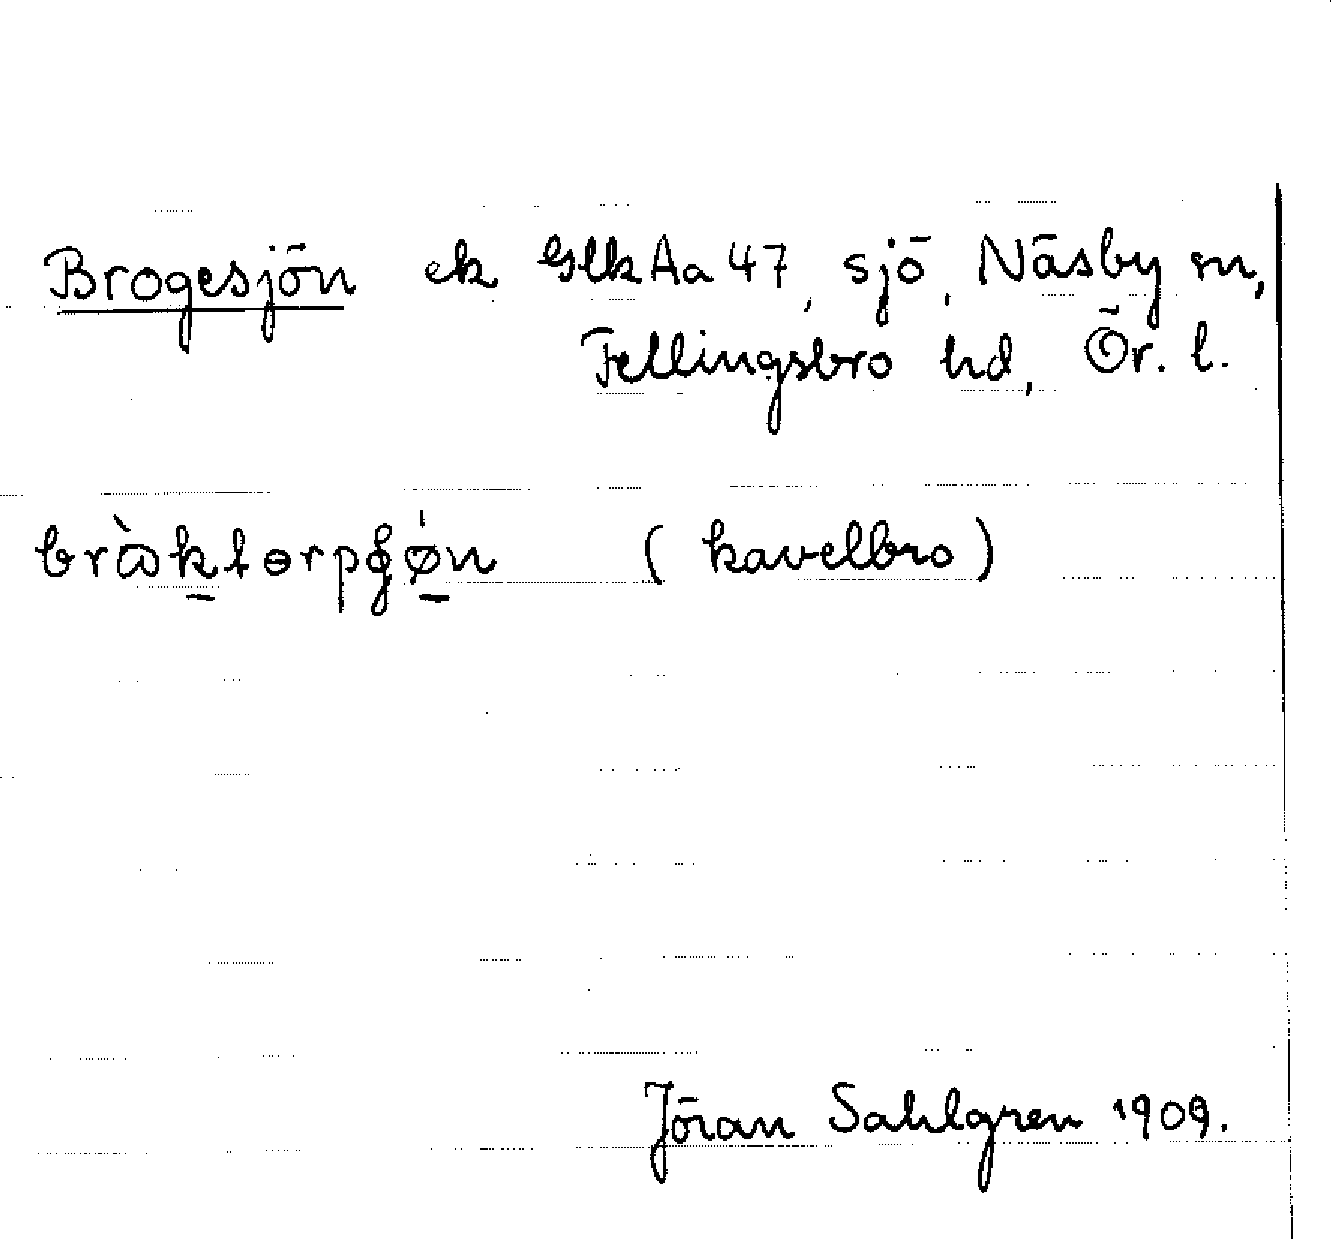 Brogesjön ek GlkAa 47, sjö, Näsby sn,
Fellingsbro hd, Ör. l.
(kavelbro)
Jöran Sahlgren 1909.